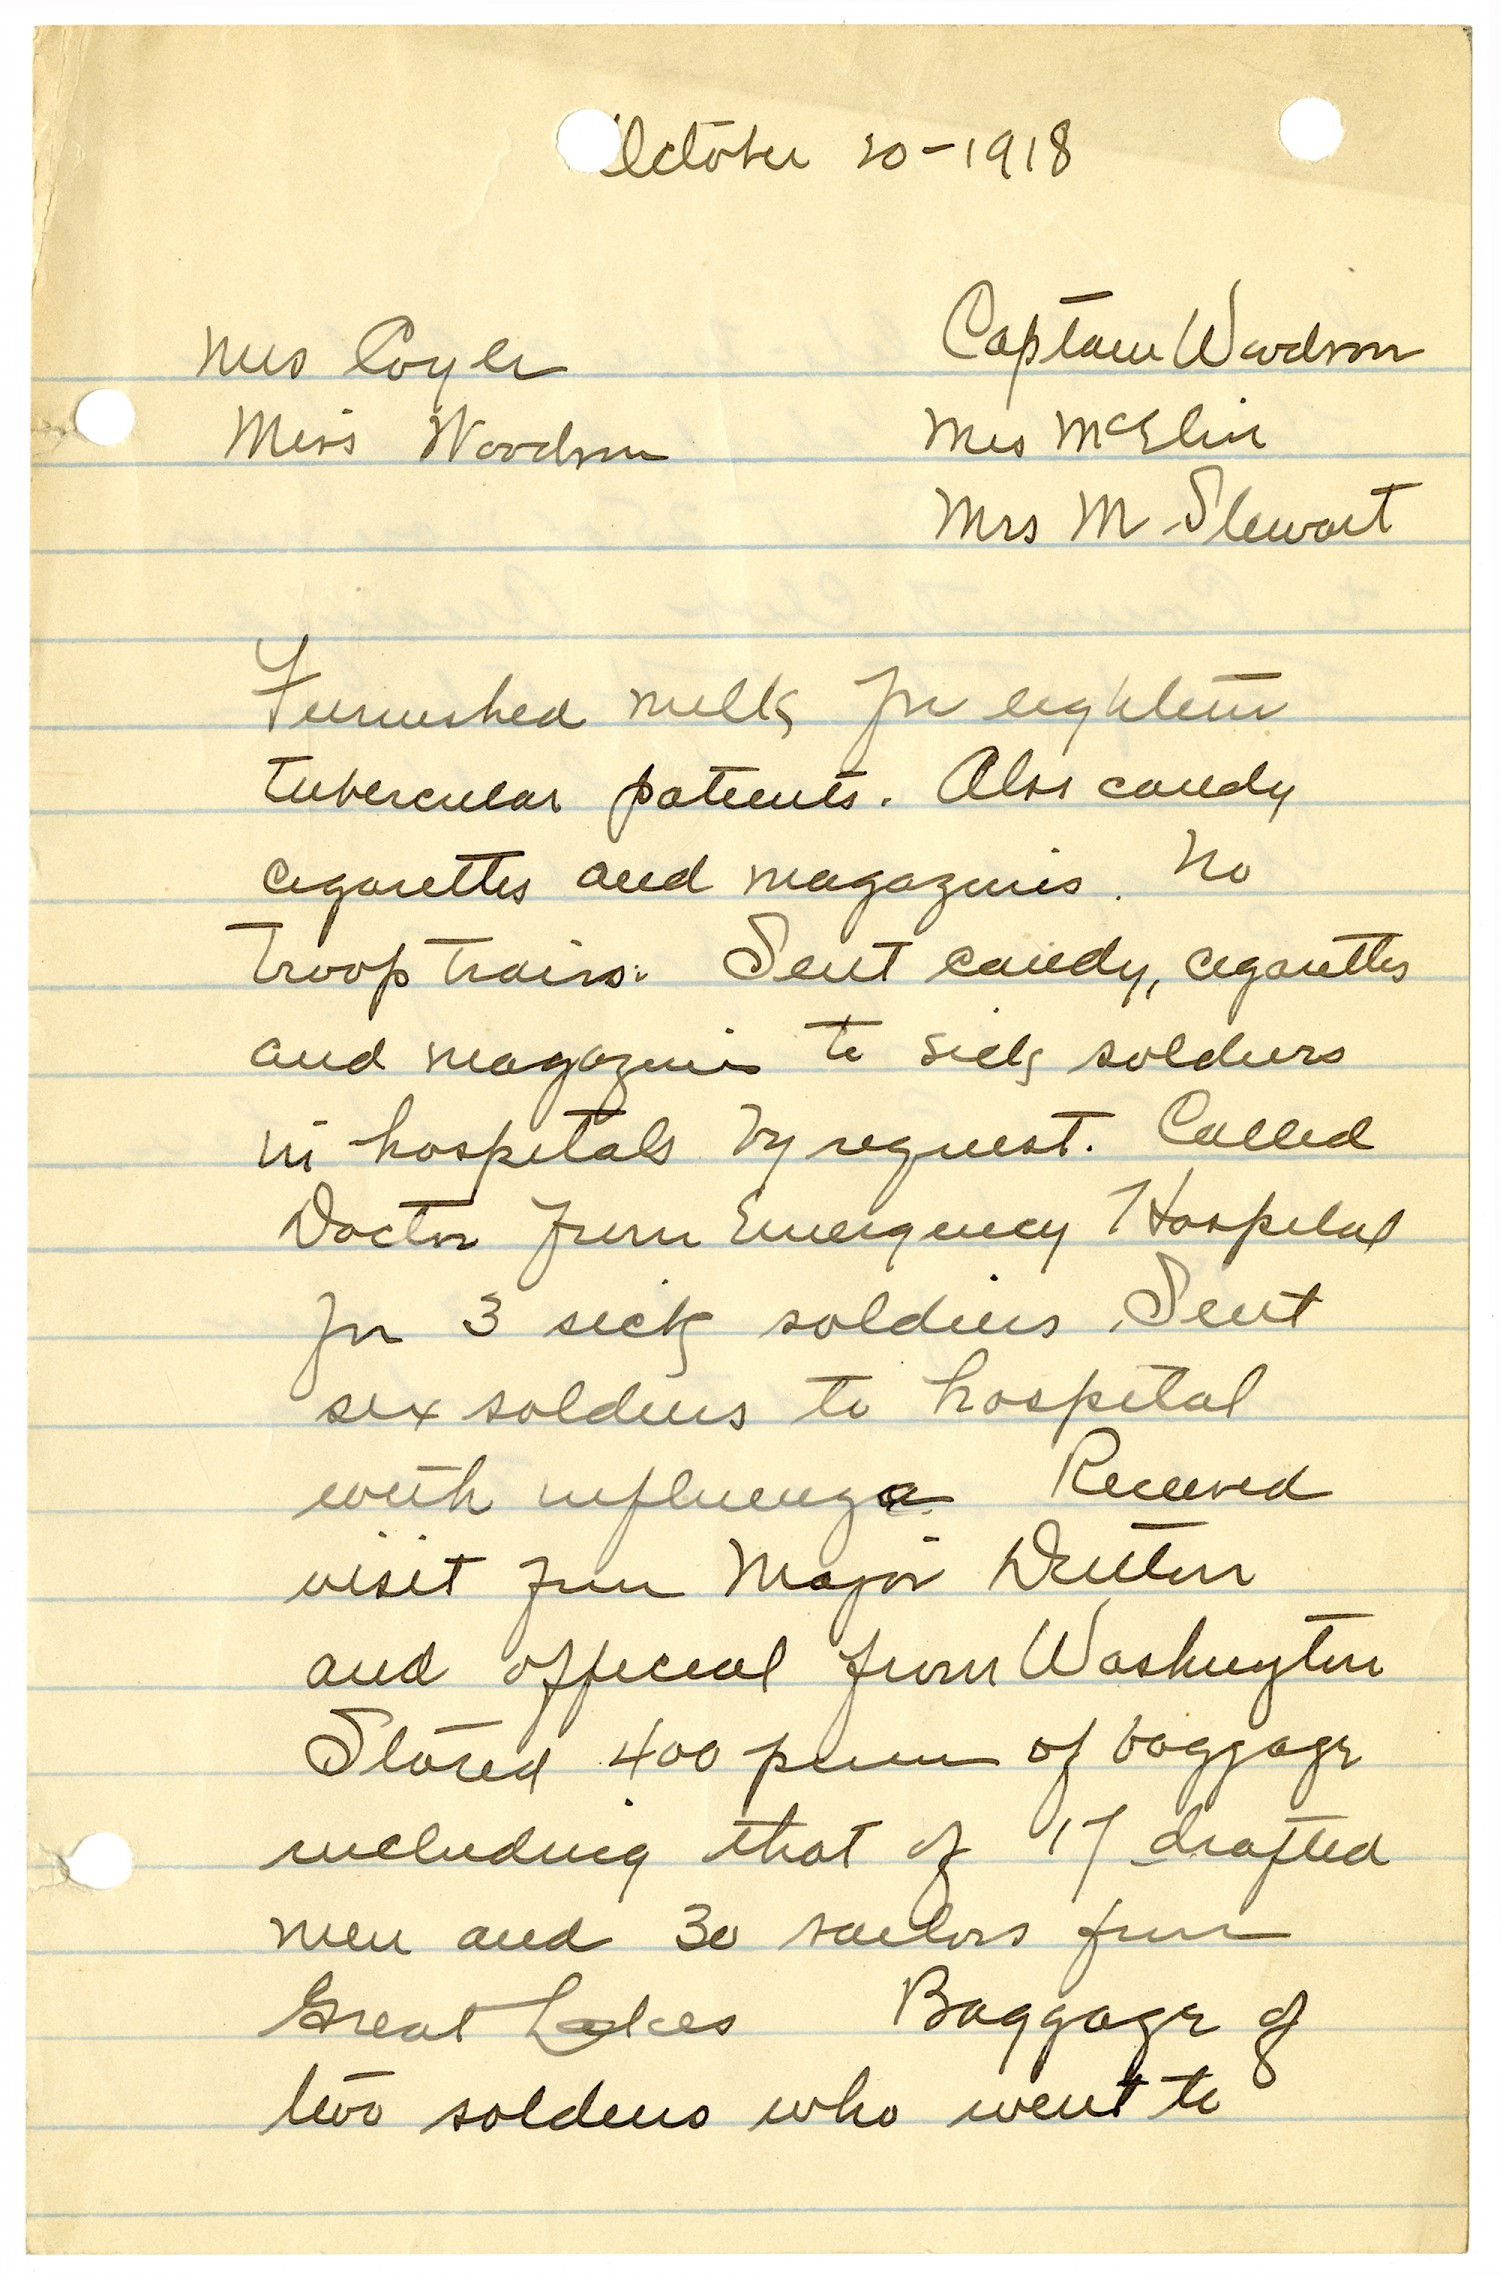 October 20-1918
Mrs Coyle
Miss Woodson
Captain Woodson
Mrs McElin
Mrs M Stewart
Furnished milk for eighteen
tubercular patients. Also candy
cigarettes and magazines. No
troop trains. Sent candy, cigarettes
and magazines to sick soldiers
in hospitals by request. Called
Doctor from Emergency Hospital
for 3 sick soldiers. Sent
six soldiers to hospital
with influenza Received
visit from Major
and official from Washington
Stored 400 pieces of baggage
including that of 17 drafted
men and 30 sailors from
Great Lakes Baggage of
two soldiers who went to